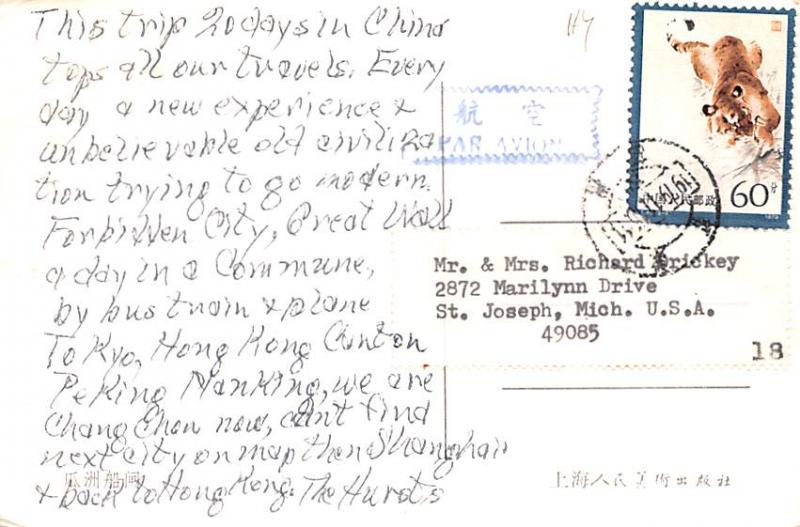 This trip 20 days in China
tops all our travels. Every
day a new experience &
unbelievable old civiliza
tion trying to go modern.
Forbidden City, Great Wall
a day in a Commune,
by bus train & plane
Tokyo, Hong Kong Canton
PeKing NanKing, we are
Chang Chou now, cant find
next city on map then Shanghai
& back to Hong Kong. The Hursts
瓜洲船闸
HY
航空
PAR AVION
60分
中国人民邮政
Mr. & Mrs. Richard Brickey
2872 Marilynn Drive
St. Joseph, Mich. U.S.A.
49085
18
上海人民美術出版社